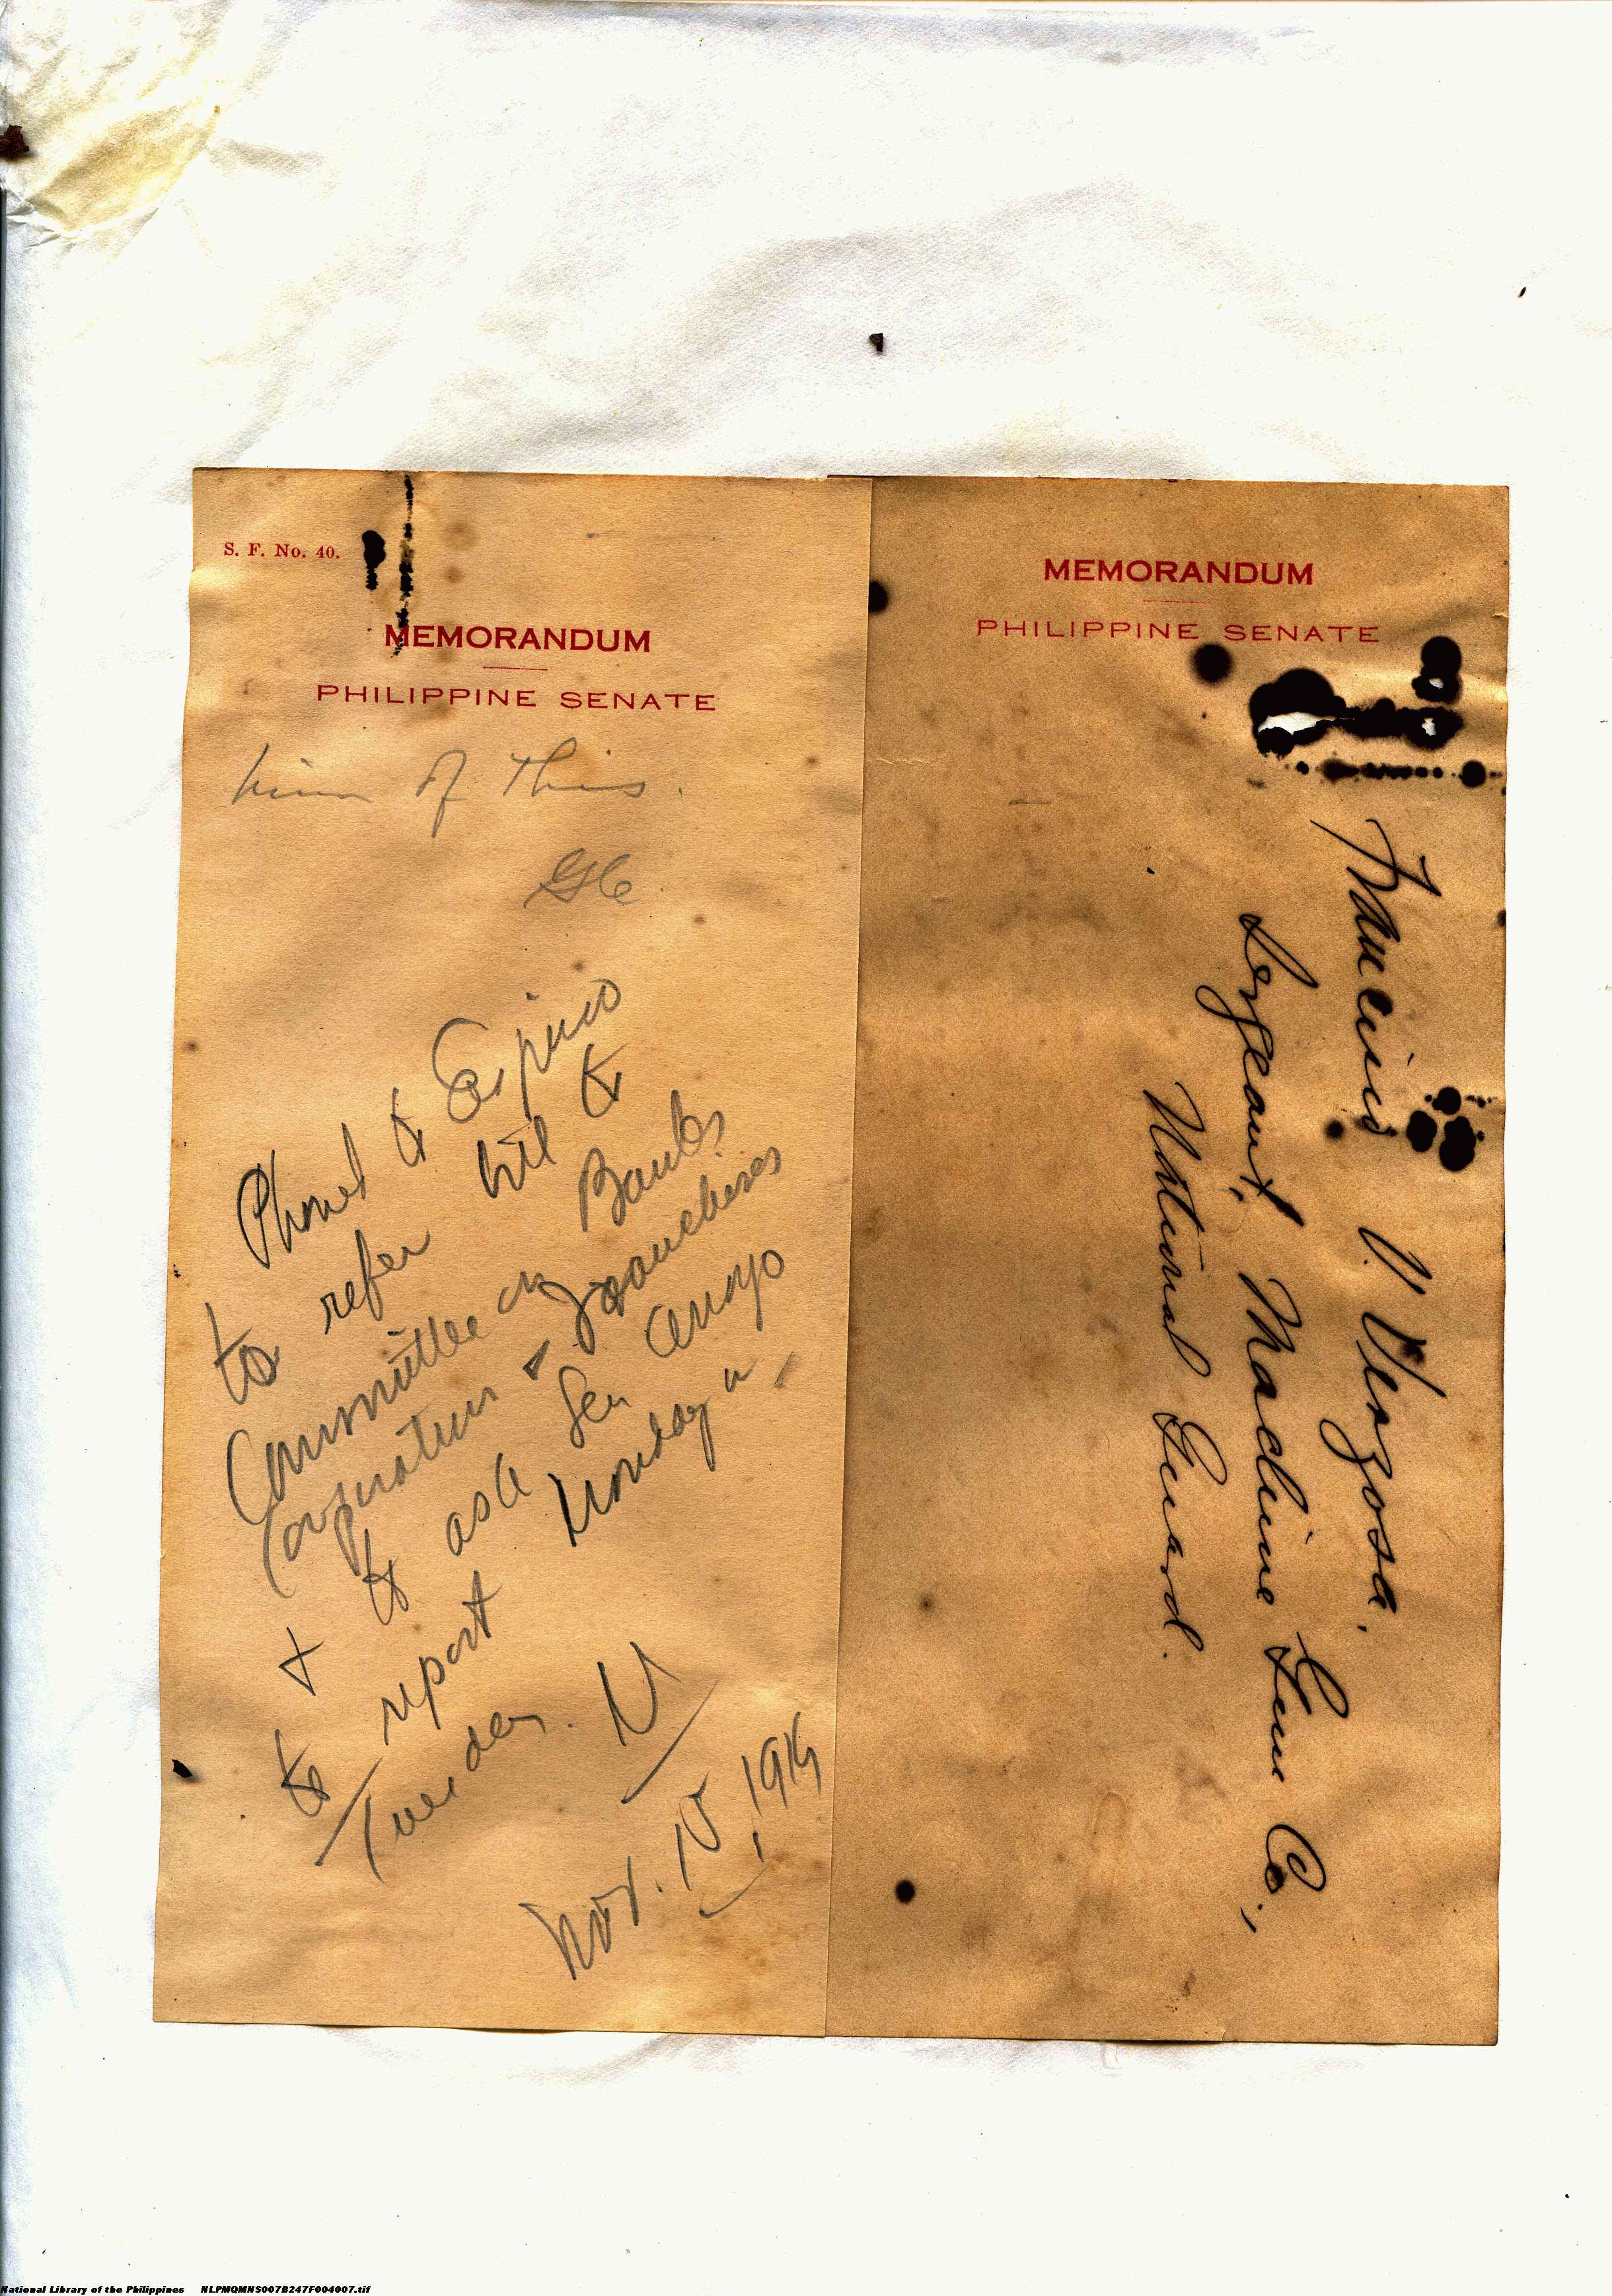 S. F. No. 40.
MEMORANDUM
PHILIPPINE SENATE
him of this.
Phoned to Espino
to refer bill to
Committee on Banks
Corporations & Franchises
& to ask Sen Arroyo
to report Monday or
Tuesday.
Nov. 15, 1919
MEMORANDUM
PHILIPPINE SENATE
Francisco V. Verzosa.
Sergeant, Machine Gun Co.,
National Guard.
National Library of the Philippines NLPMQMNS007B247F004007.tif